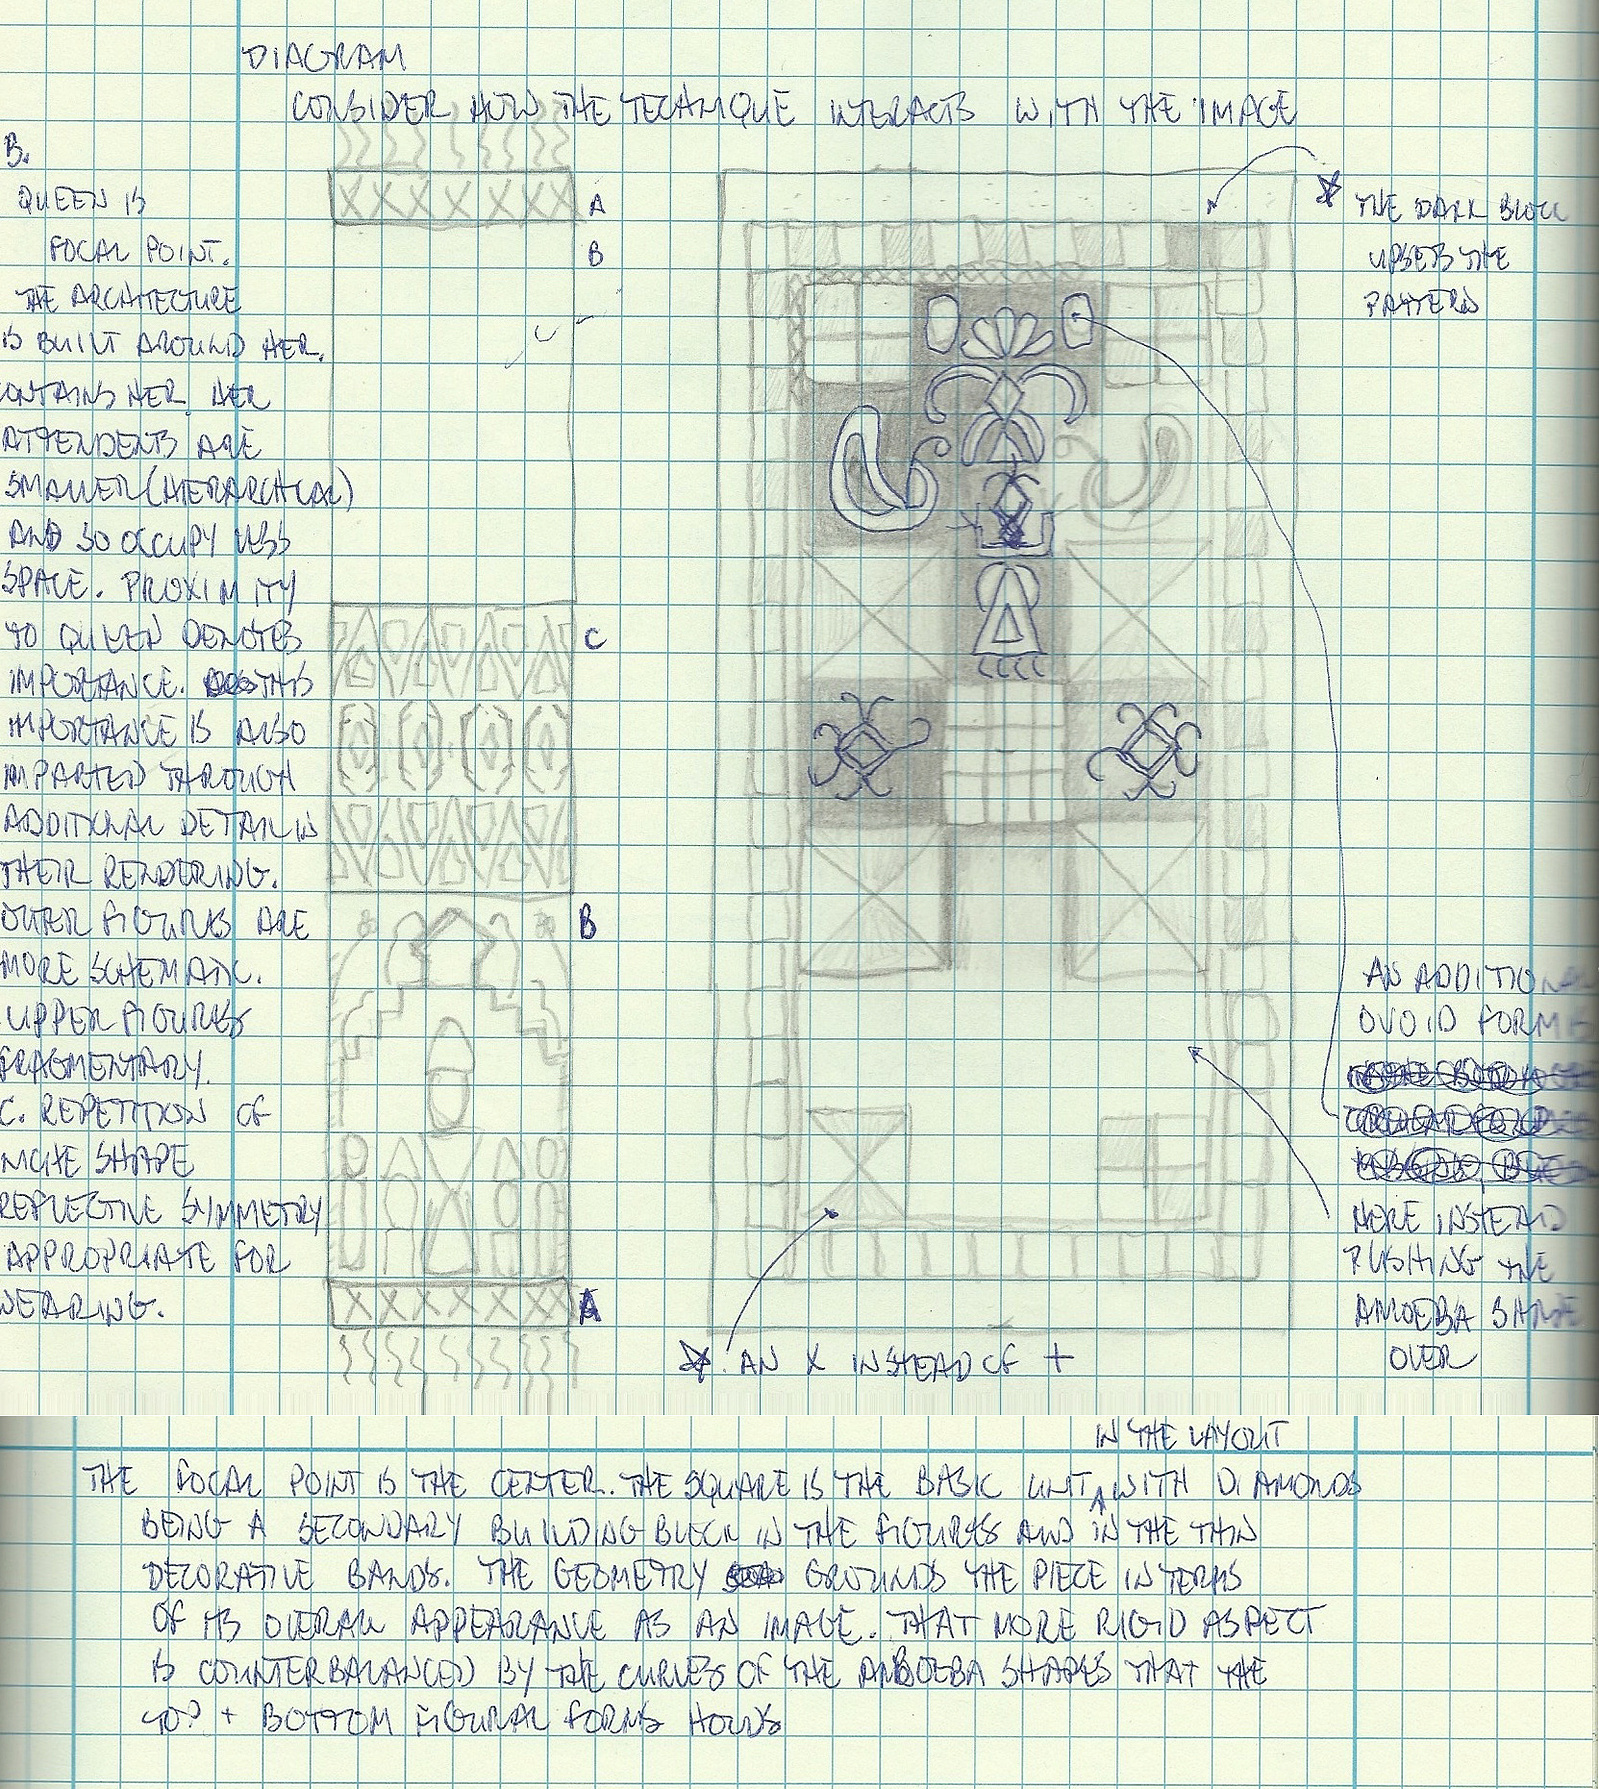 DIAGRAM
CONSIDER HOW THE TECHNIQUE INTERACTS WITH THE IMAGE
B.
QUEEN IS
FOCAL POINT.
THE ARCHITECTURE
IS BUILT AROUND HER.
CONTAINS HER. HER
ATTENDENTS ARE
SMALLER (HIERARCHICAL)
AND SO OCCUPY LESS
SPACE. PROXIMITY
TO QUEEN DENOTES
IMPORTANCE. THIS
IMPORTANCE IS ALSO
IMPARTED THROUGH
ADDITIONAL DETAIL IN
THEIR RENDERING.
OUTER FIGURES ARE
MORE SCHEMATIC.
UPPER FIGURES
FRAGMENTARY.
C. REPETITION OF
NICHE SHAPE
REFLECTIVE SYMMETRY
APPROPRIATE FOR
WEARING.
A
B
C
B
A
THE DARK BLOCK
UPSETS THE
PATTERN
AN ADDITIONAL
OVOID FORM IS
HERE INSTEAD
PUSHING THE
AMOEBA SHAPE
OVER
AN X INSTEAD OF +
IN THE LAYOUT
THE FOCAL POINT IS THE CENTER. THE SQUARE IS THE BASIC UNIT ^ WITH DIAMONDS
BEING A SECONDARY BUILDING BLOCK IN THE FIGURES AND IN THE THIN
DECORATIVE BANDS. THE GEOMETRY GROUNDS THE PIECE IN TERMS
OF ITS OVERALL APPEARANCE AS AN IMAGE. THAT MORE RIGID ASPECT
IS COUNTERBALANCED BY THE CURVES OF THE AMOEBA SHAPES THAT THE
TOP + BOTTOM FIGURAL FORMS HOLDS